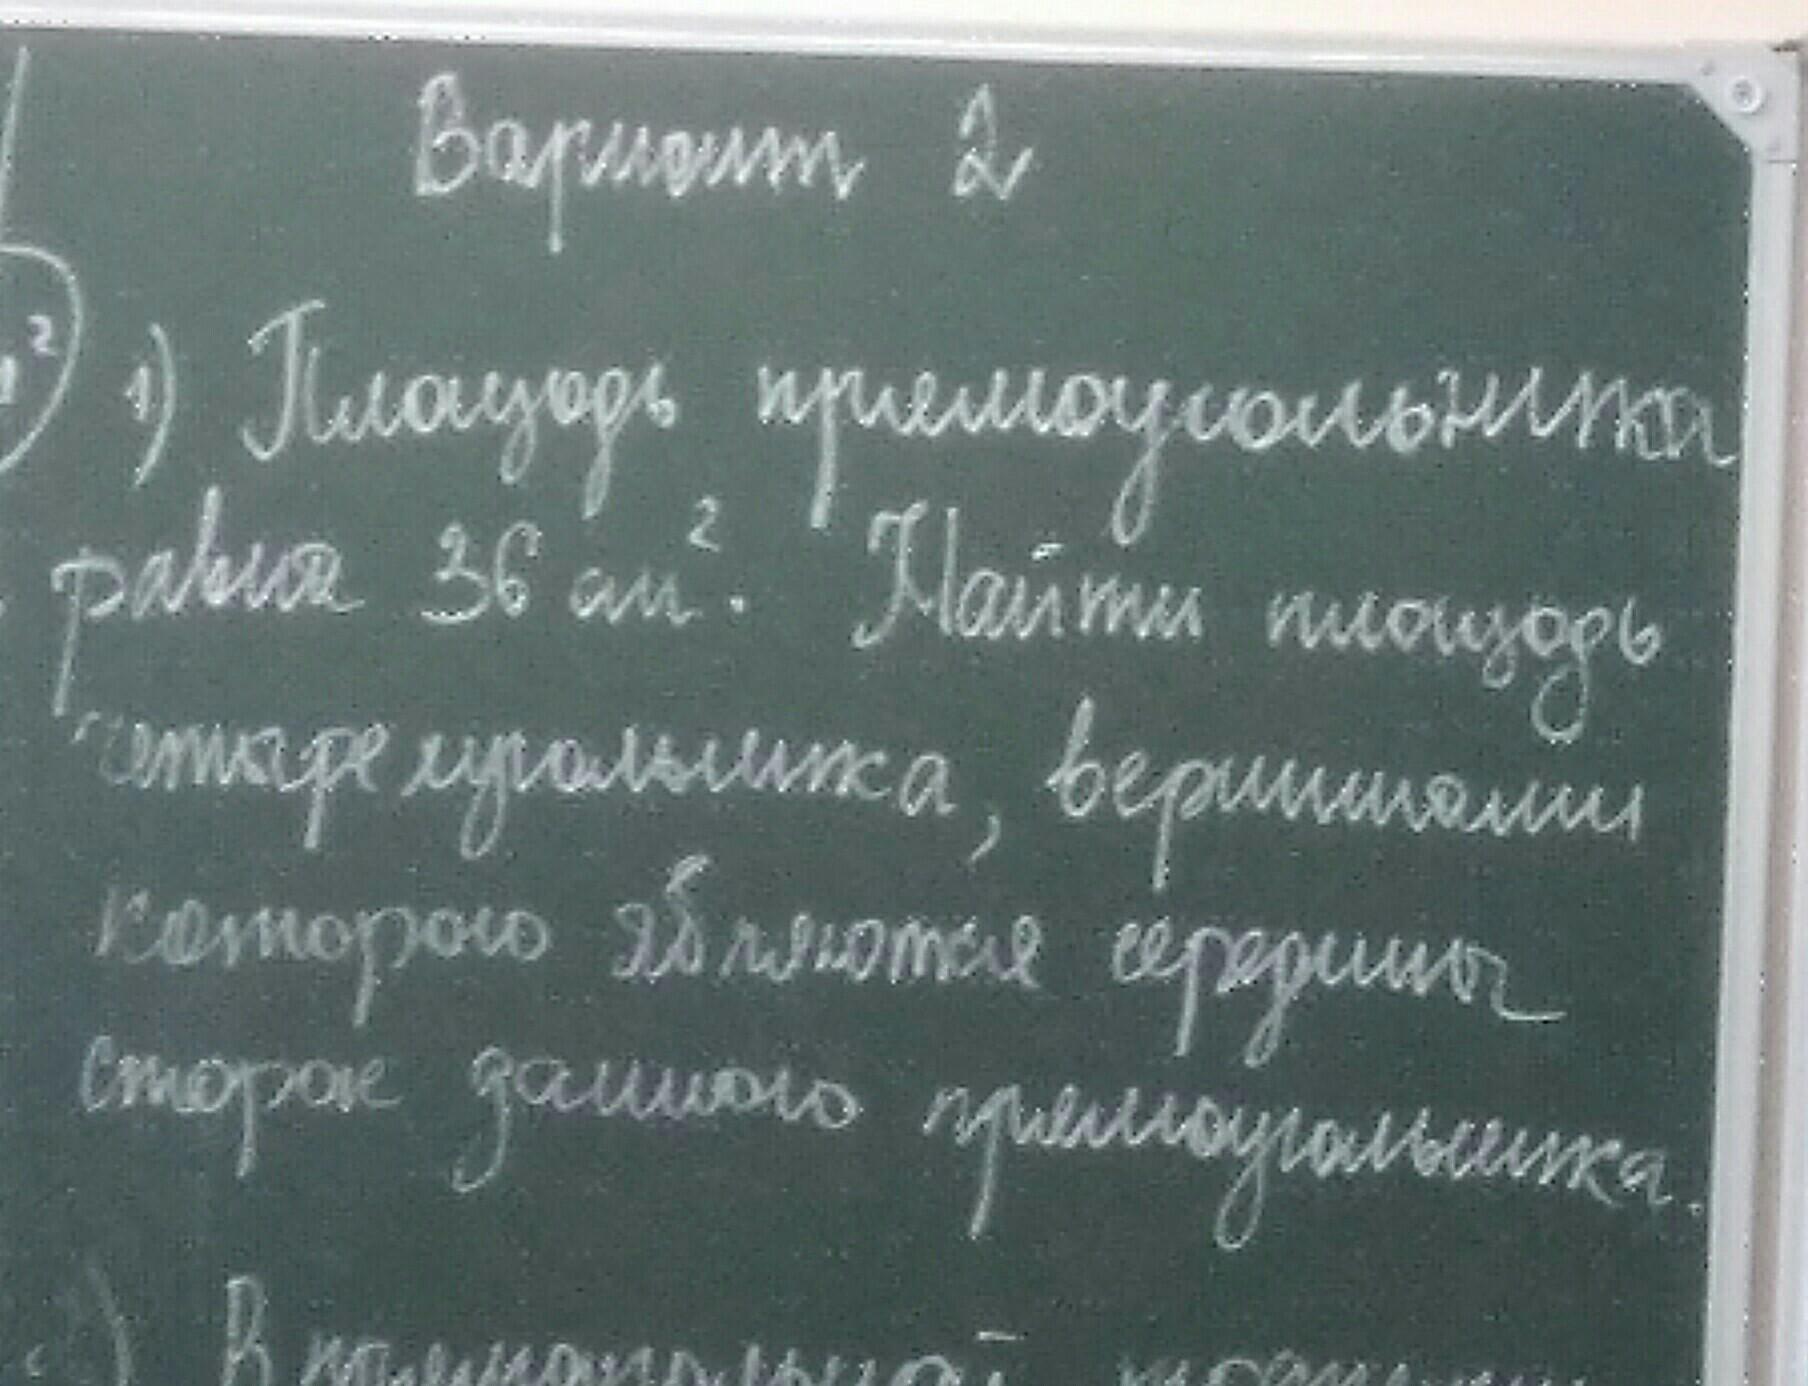 Вариант 2
1) Площадь прямоугольника
равна 36 см². Найти площадь
четырехугольника, вершинами
которого являются середины
сторон данного прямоугольника.
В прямоугольной